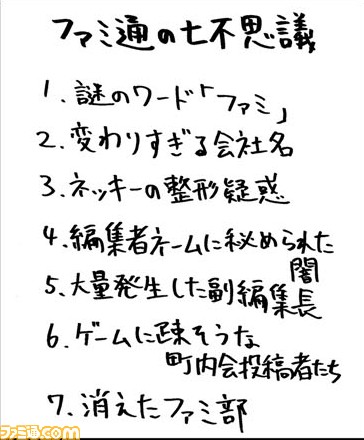 ファミ通の七不思議
1. 謎のワード「ファミ」
2. 変わりすぎる会社名
3. ネッキーの整形疑惑
4. 編集者ネームに秘められた
闇
5. 大量発生した副編集長
6. ゲームに疎そうな
町内会投稿者たち
7. 消えたファミ部
ファミ通.com